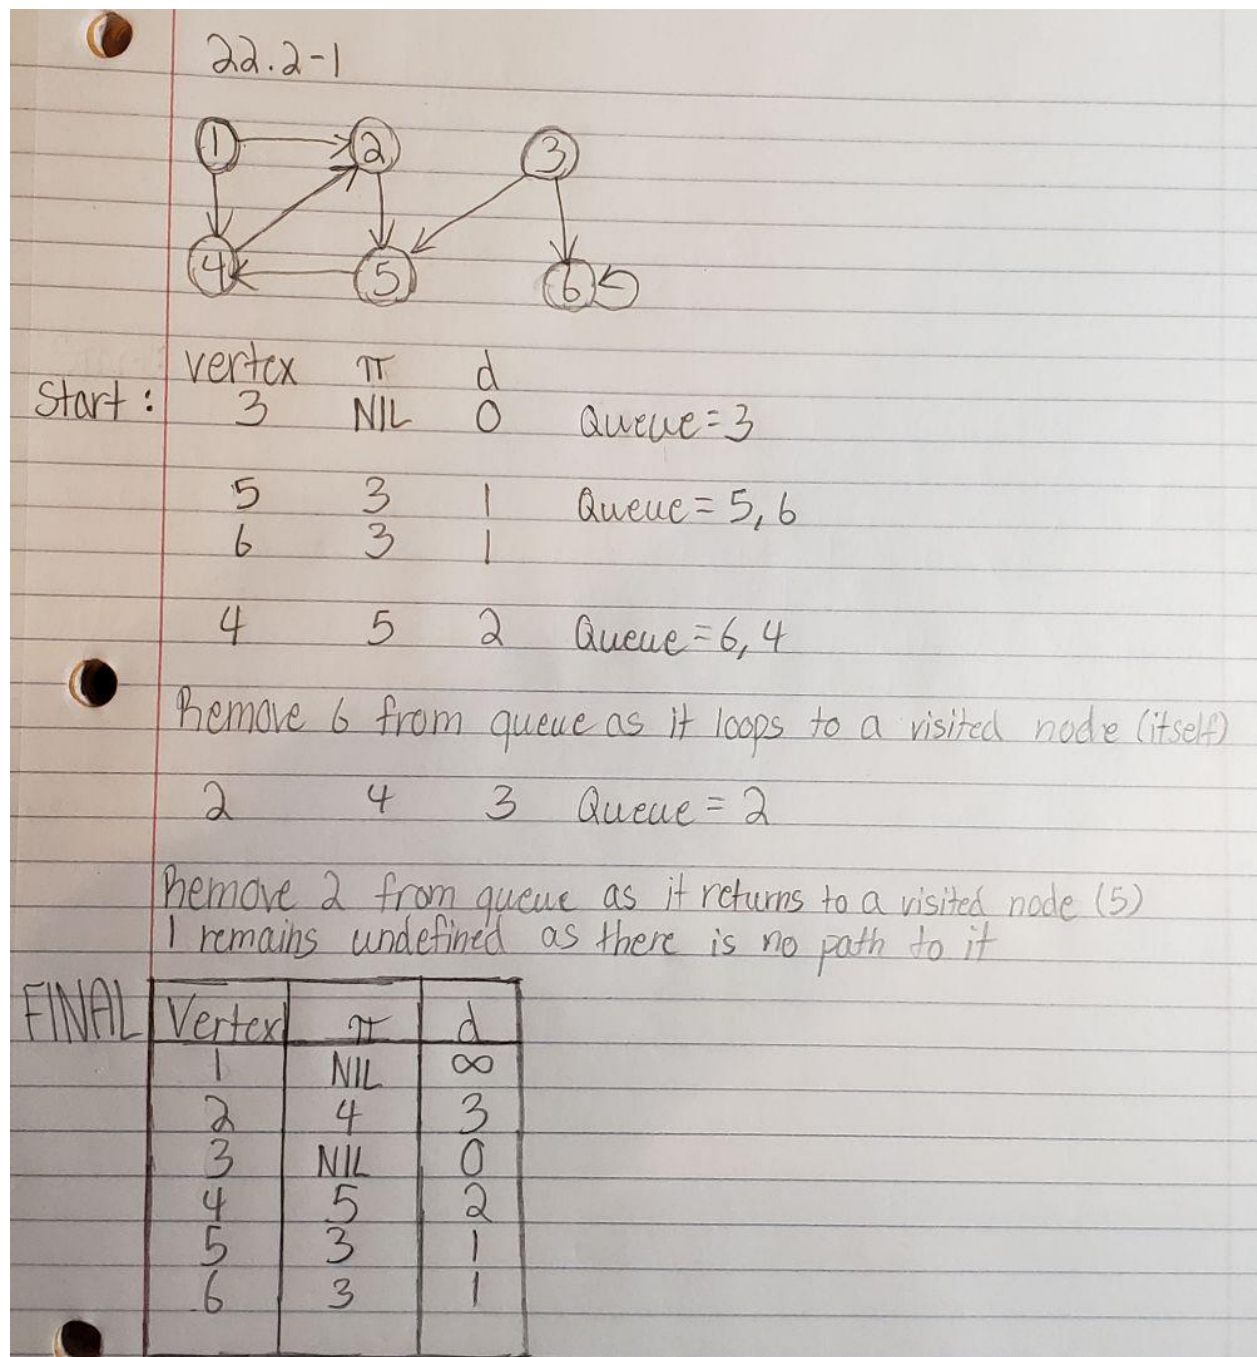 22.2-1
1 2 3
4 5 6
vertex π d
Start: 3 NIL 0 Queue=3
5 3 1 Queue=5,6
6 3 1
4 5 2 Queue=6,4
Remove 6 from queue as it loops to a visited node (itself)
2 4 3 Queue=2
Remove 2 from queue as it returns to a visited node (5)
1 remains undefined as there is no path to it
FINAL Vertex π d
1 NIL ∞
2 4 3
3 NIL 0
4 5 2
5 3 1
6 3 1